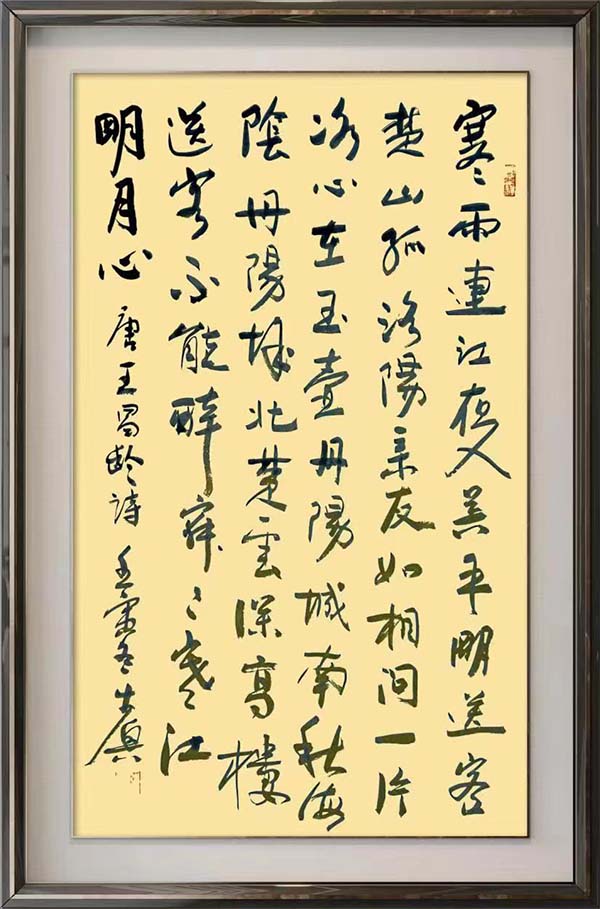 寒雨連江夜入吴平明送客
楚山孤洛陽亲友如相问一片
冰心在玉壶丹陽城南秋海
陰丹陽城北楚雲深高樓
送客不能醉寂々寒江
明月心 唐王昌齡詩